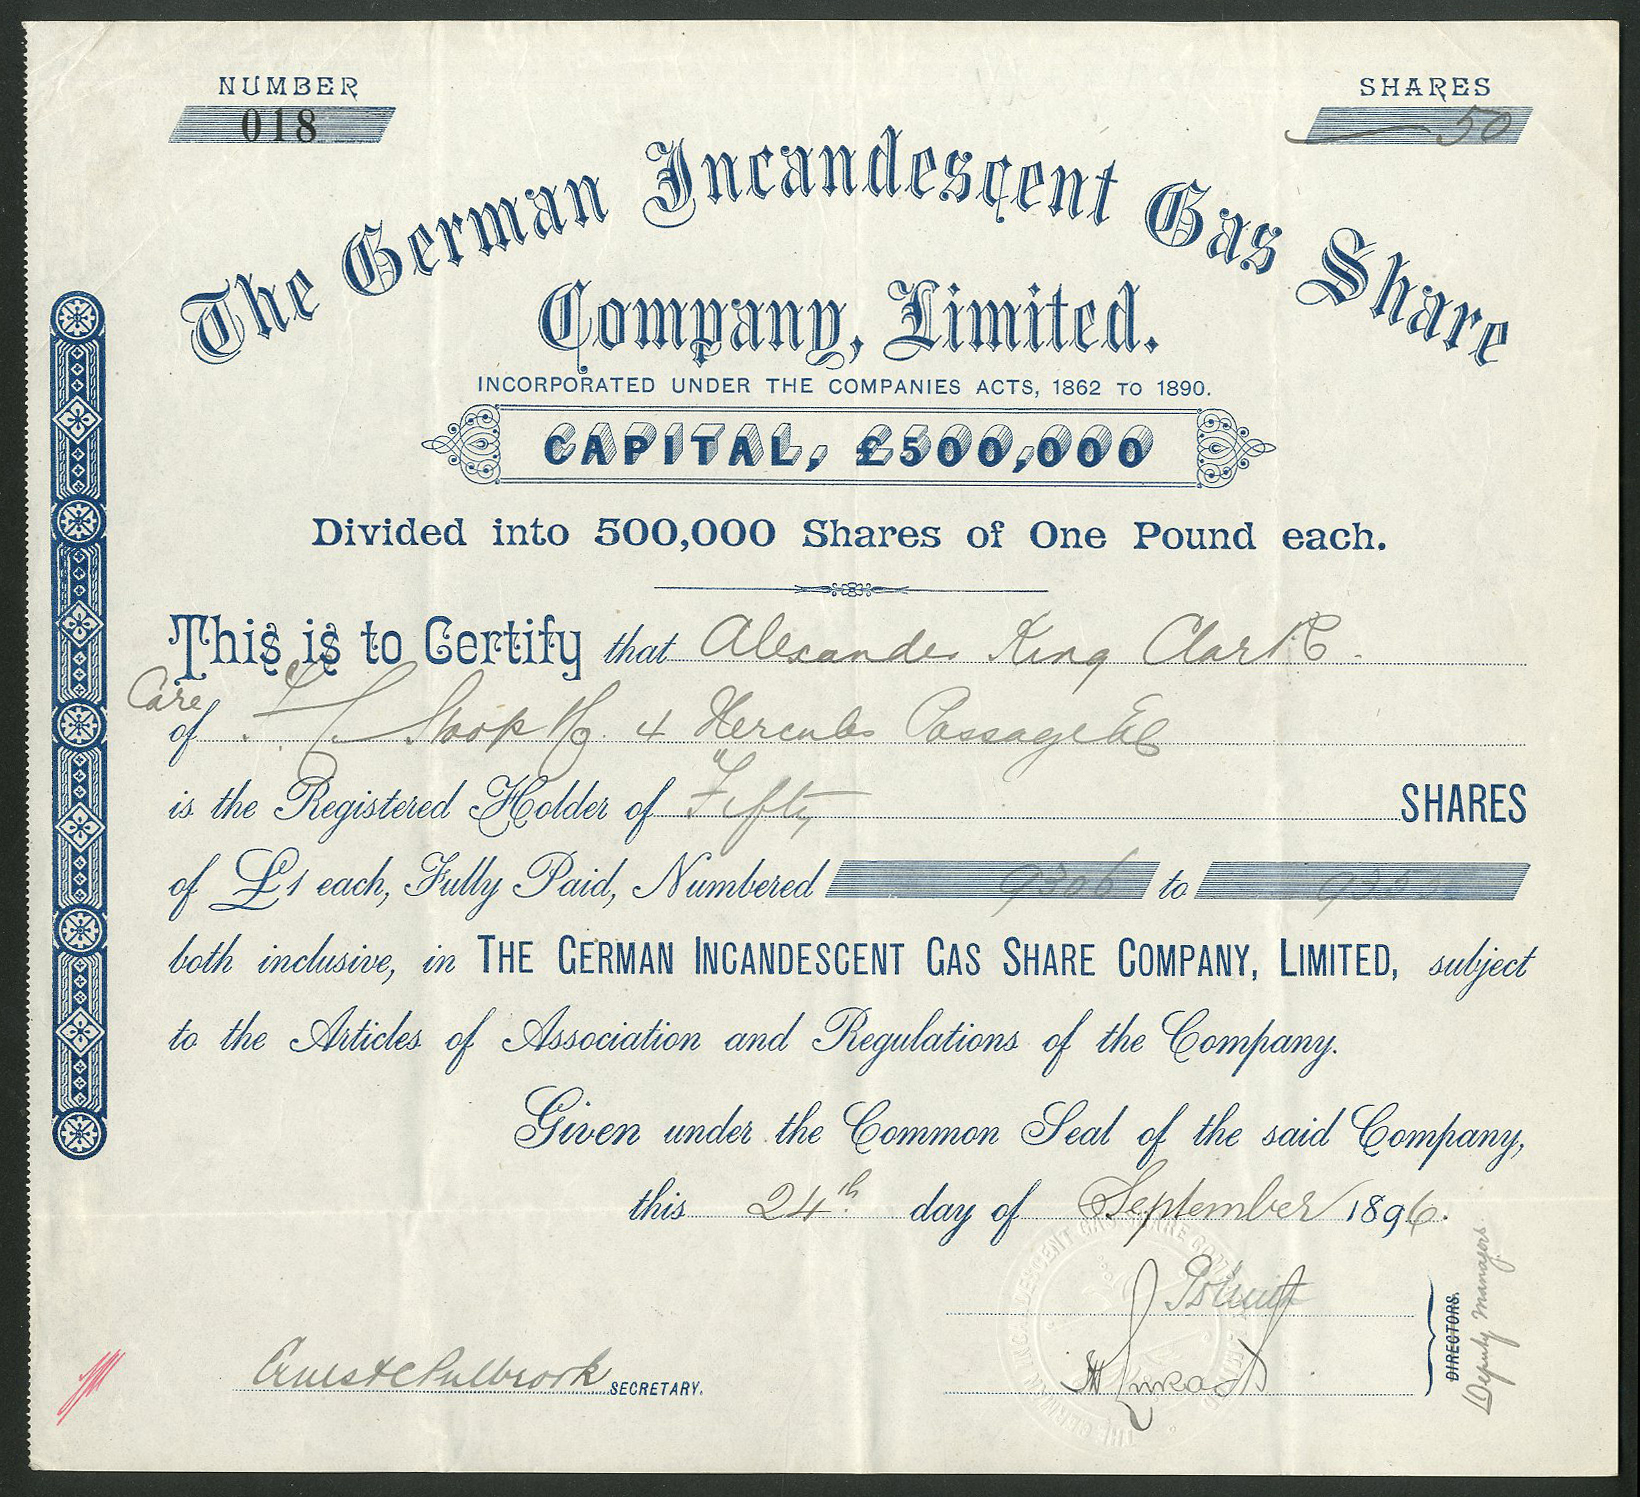 NUMBER
018
SHARES
50
The German Incandescent Gas Share
Company, Limited.
INCORPORATED UNDER THE COMPANIES ACTS, 1862 TO 1890.
CAPITAL, £500,000
Divided into 500,000 Shares of One Pound each.
This is to Certify that Alexander King Clark
Care
of 4 Hercules Passage EC
is the Registered Holder of Fifty SHARES
of £1 each, Fully Paid, Numbered 9306 to
both inclusive, in THE GERMAN INCANDESCENT GAS SHARE COMPANY, LIMITED, subject
to the Articles of Association and Regulations of the Company.
Given under the Common Seal of the said Company,
this 24th day of September 1896.
Ernest C Pulbrook SECRETARY.
DIRECTORS.
Deputy Managers